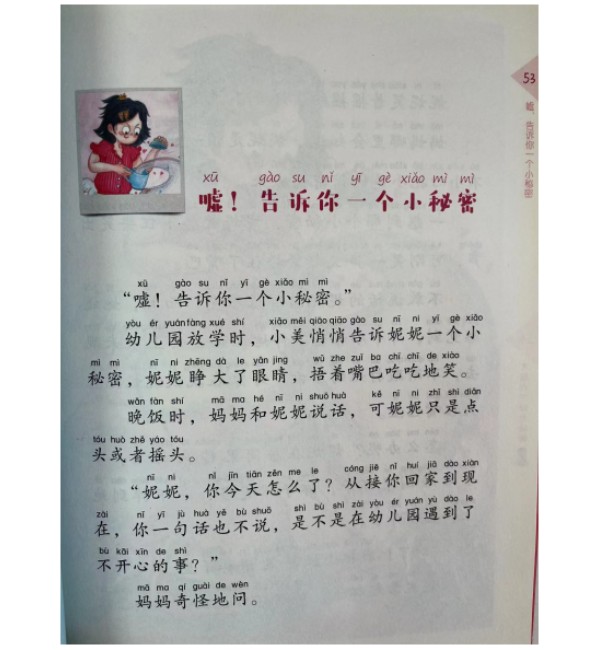 53
嘘，告诉你一个小秘密
xū gào su nǐ yī gè xiǎo mì mì
嘘！告诉你一个小秘密
xū gào su nǐ yī gè xiǎo mì mì
“嘘！告诉你一个小秘密。”
yòu ér yuán fàng xué shí xiǎo měi qiāo qiāo gào su nī ni yī gè xiǎo
幼儿园放学时，小美悄悄告诉妮妮一个小
mì mì nī ni zhēng dà le yǎn jing wǔ zhe zuǐ ba chī chī de xiào
秘密，妮妮睁大了眼睛，捂着嘴巴吃吃地笑。
wǎn fàn shí mā ma hé nī ni shuō huà kě nī ni zhǐ shì diǎn
晚饭时，妈妈和妮妮说话，可妮妮只是点
tóu huò zhě yáo tóu
头或者摇头。
nī ni nǐ jīn tiān zěn me le cóng jiē nǐ huí jiā dào xiàn
“妮妮，你今天怎么了？从接你回家到现
zài nǐ yī jù huà yě bù shuō shì bù shì zài yòu ér yuán yù dào le
在，你一句话也不说，是不是在幼儿园遇到了
bù kāi xīn de shì
不开心的事？”
mā ma qí guài de wèn
妈妈奇怪地问。